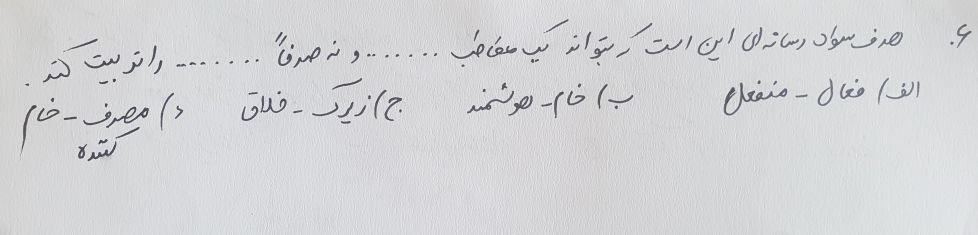 ۶. هدف سواد رسانه‌ای این است که بتواند یک مخاطب ....... و نه صرفاً ....... را تربیت کند.
الف) فعال - منفعل ب) خام - هوشمند ج) زیرک - خلاق د) مصرف - خام
کننده